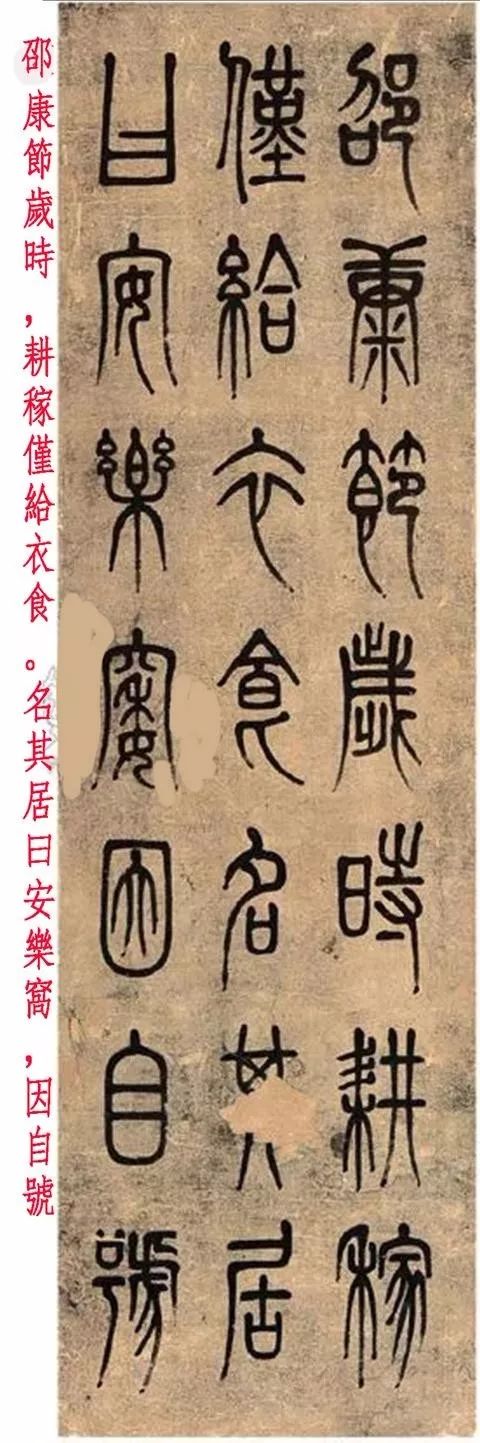 邵康節歲時耕稼
僅給衣食名其居
曰安樂窩因自號
邵康節歲時，耕稼僅給衣食。名其居曰安樂窩，因自號